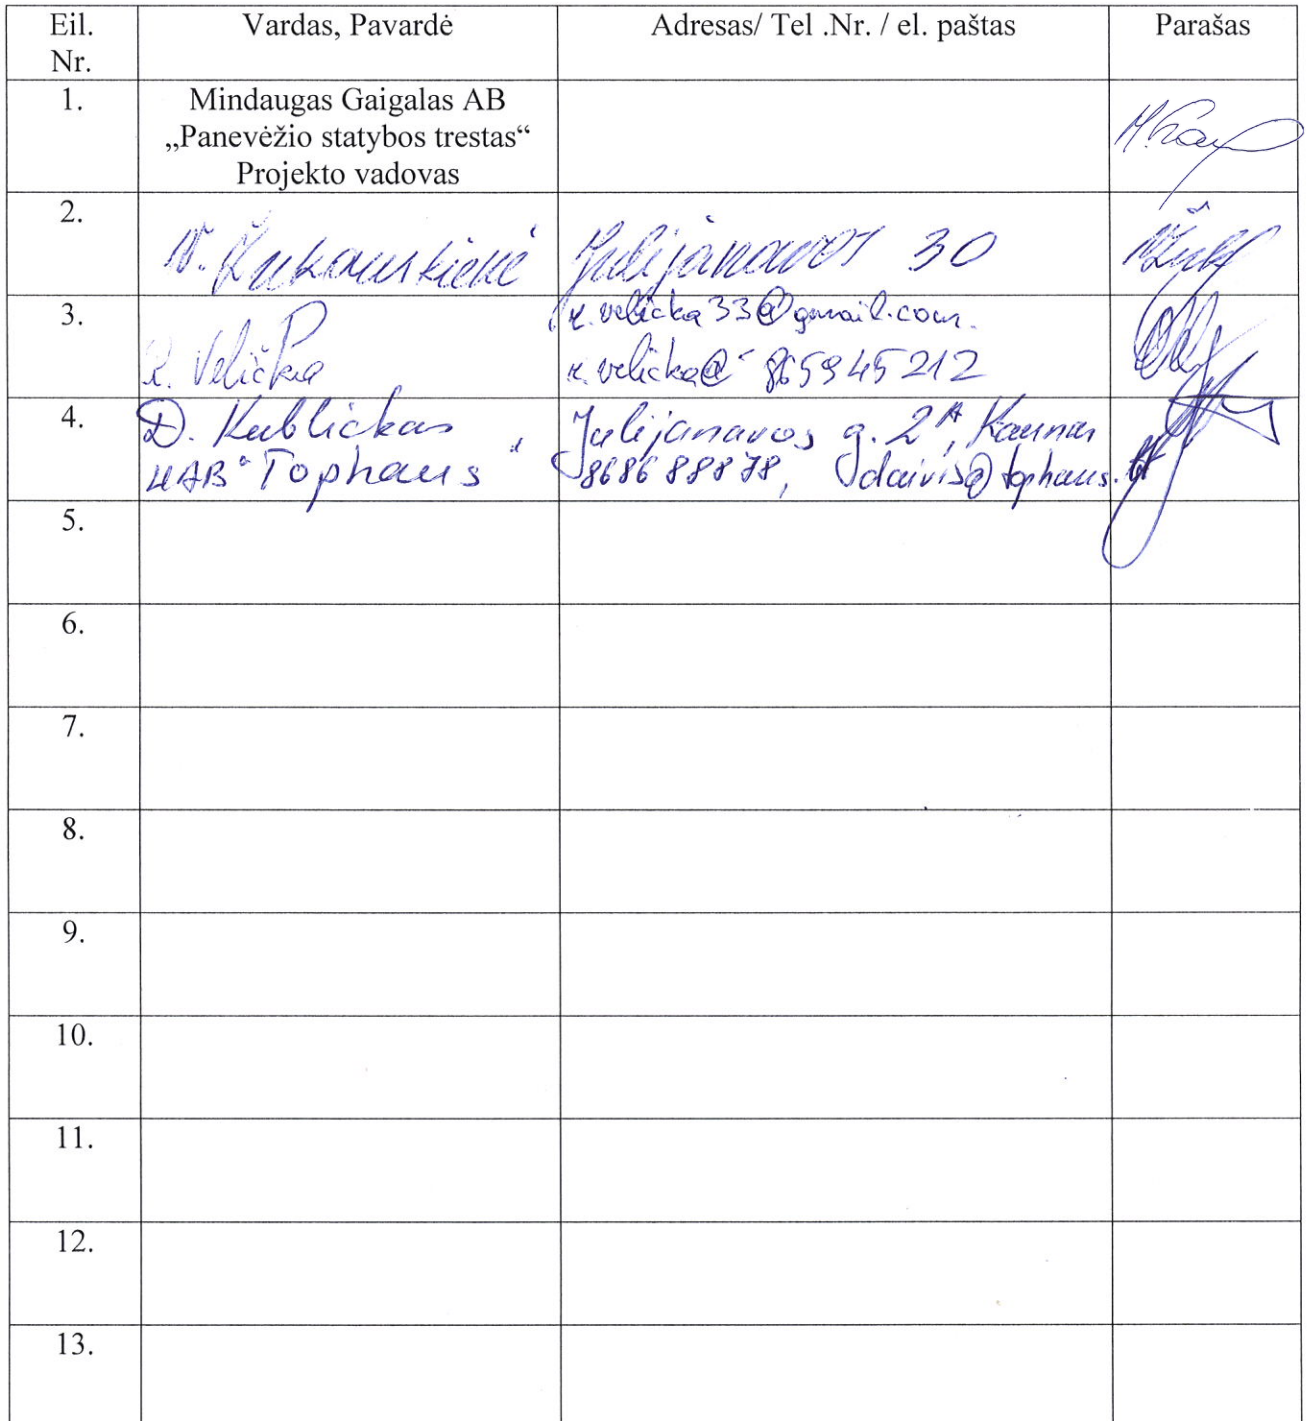 Eil. Nr. Vardas, Pavardė Adresas/ Tel .Nr. / el. paštas Parašas
1. Mindaugas Gaigalas AB
„Panevėžio statybos trestas“
Projekto vadovas
2. N. Žukauskienė Julijanavos 30
3. r.velicka33@gmail.com.
R. Velička r.velicka@ 865945212
4. D. Kublickas Julijanavos g. 2A, Kaunas
UAB "Tophaus" 868688878, daivis@tophaus.lt
5.
6.
7.
8.
9.
10.
11.
12.
13.